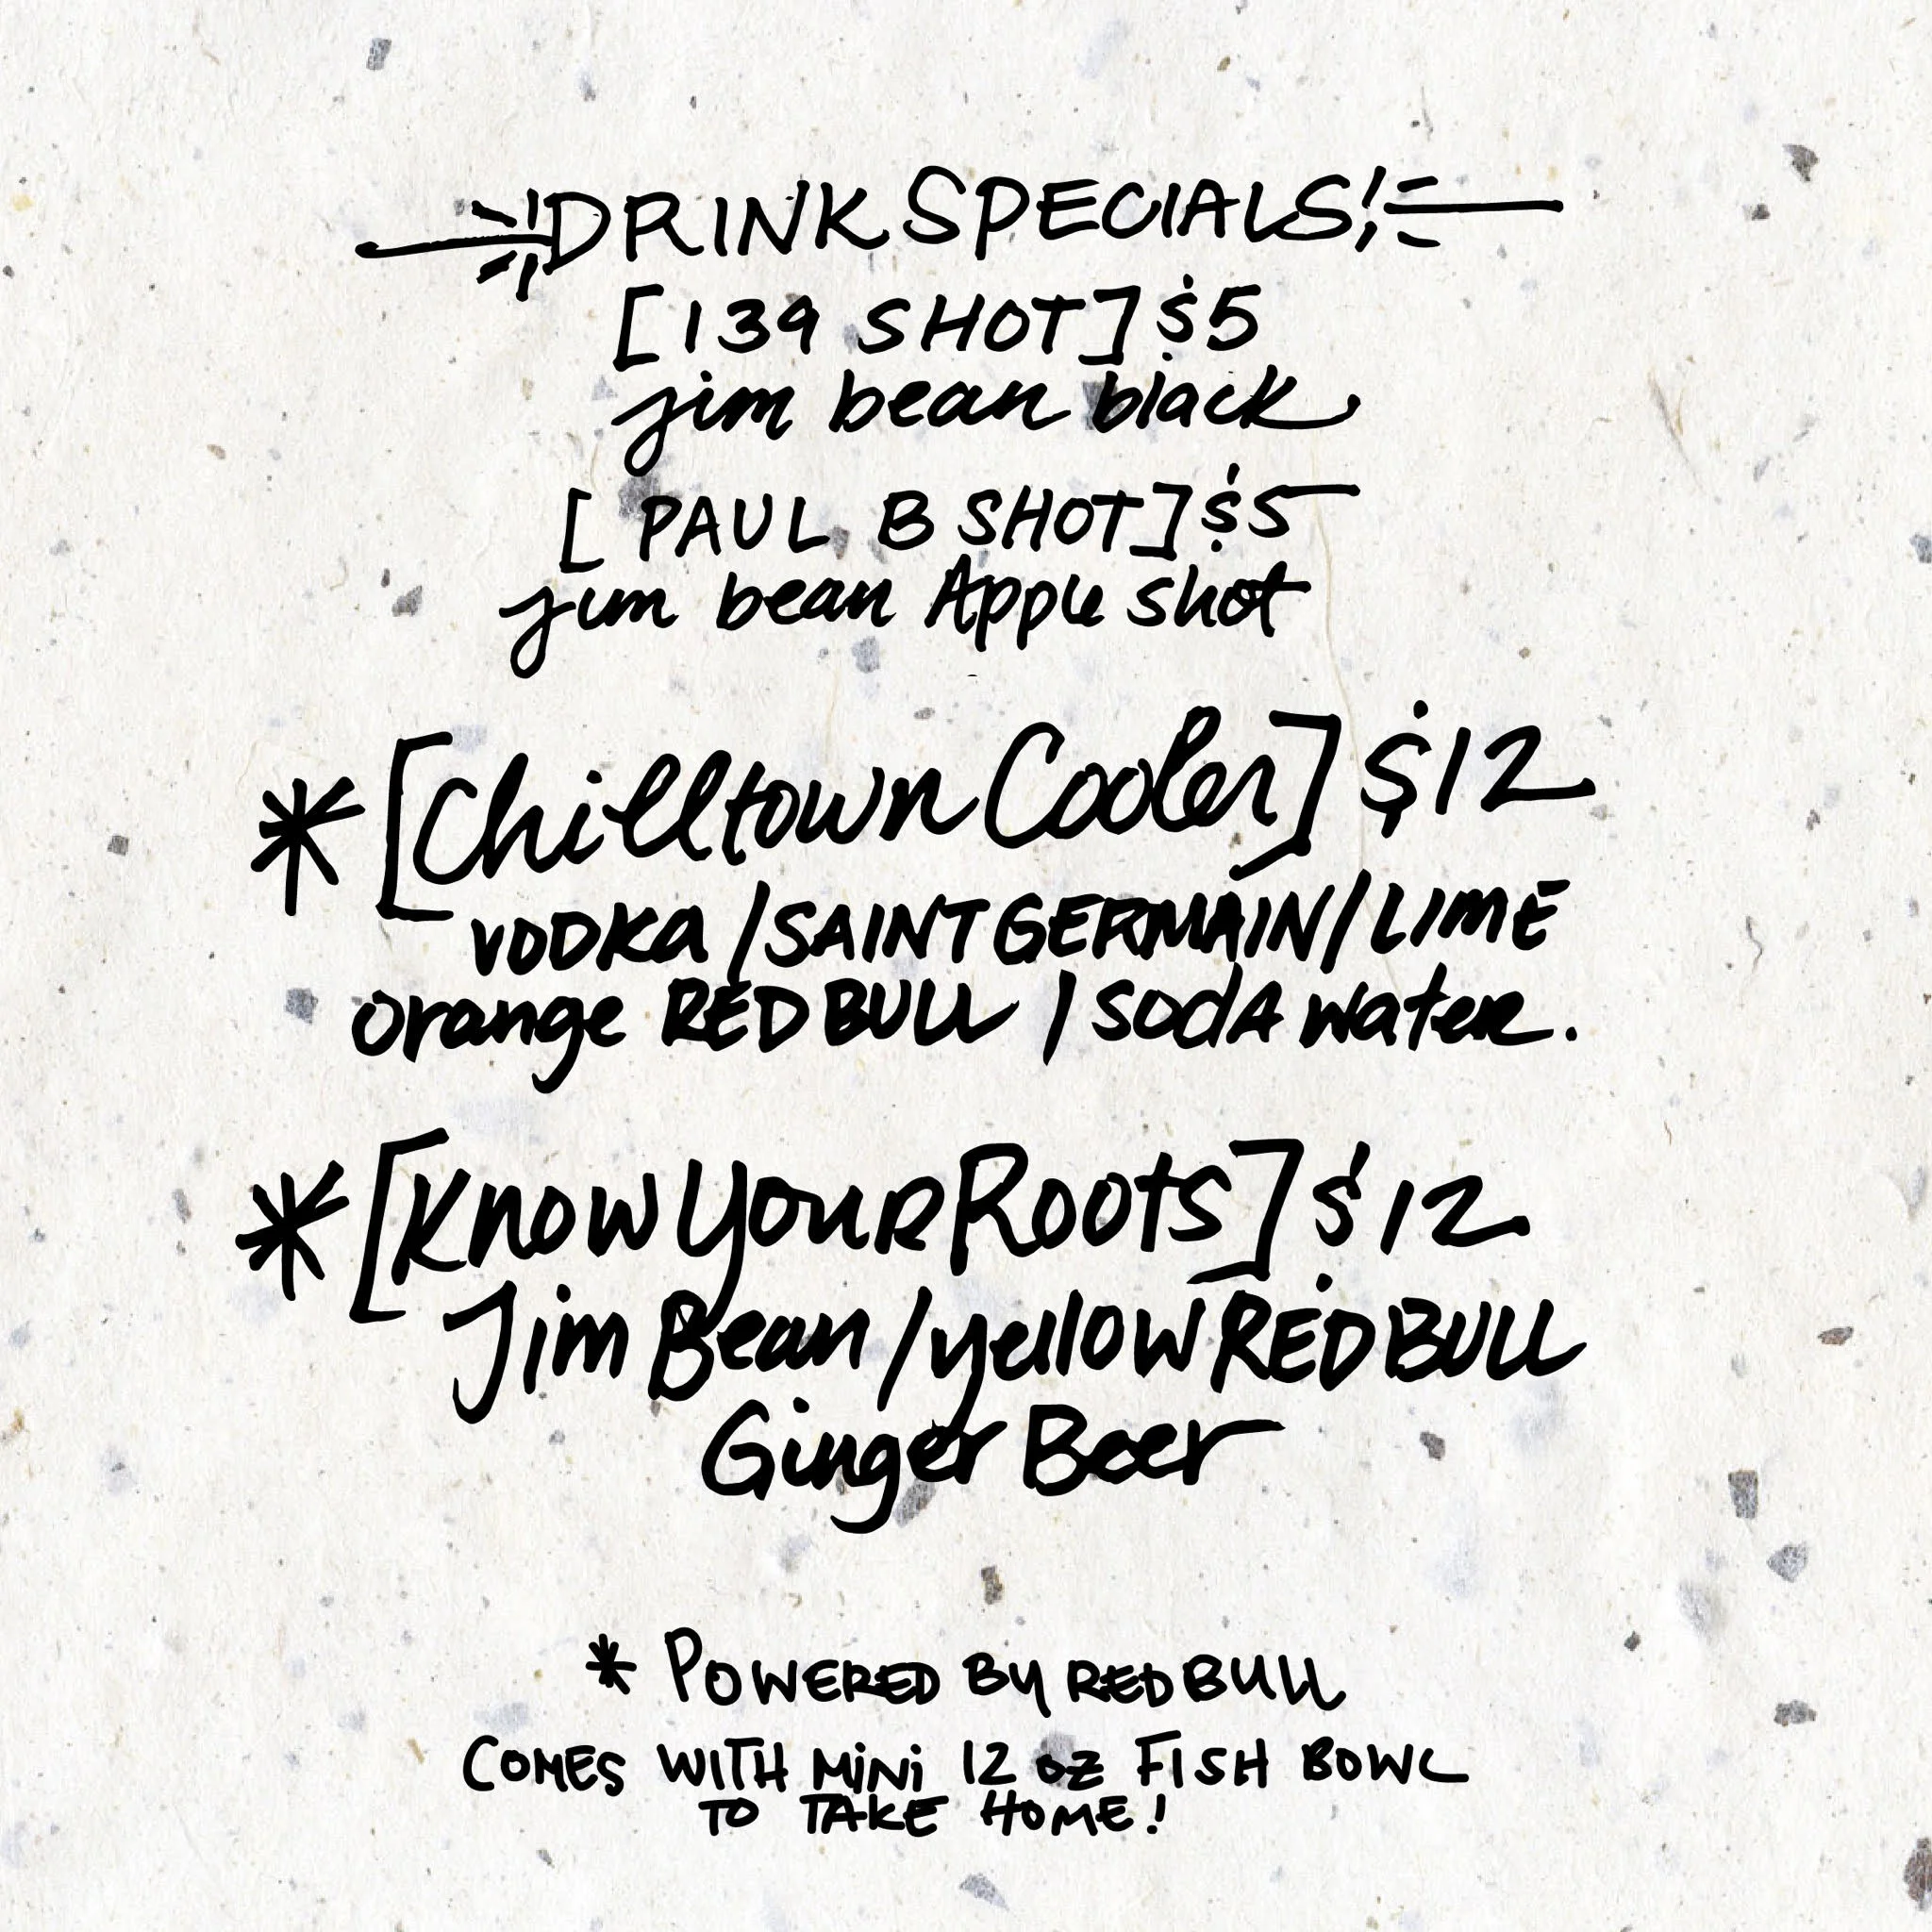 DRINK SPECIALS!
[139 SHOT] $5
jim bean black
[PAUL B SHOT] $5
jim bean Apple shot
*[Chilltown Cooler] $12
VODKa / SAINT GERMAIN / LIME
orange RED BULL / SodA water.
*[Know Your Roots] $12
Jim Bean / yellow RED BULL
Ginger Beer
* POWERED BY RED BULL
COMES WITH MiNi 12 oz FISH BOWL
TO TAKE HOME!